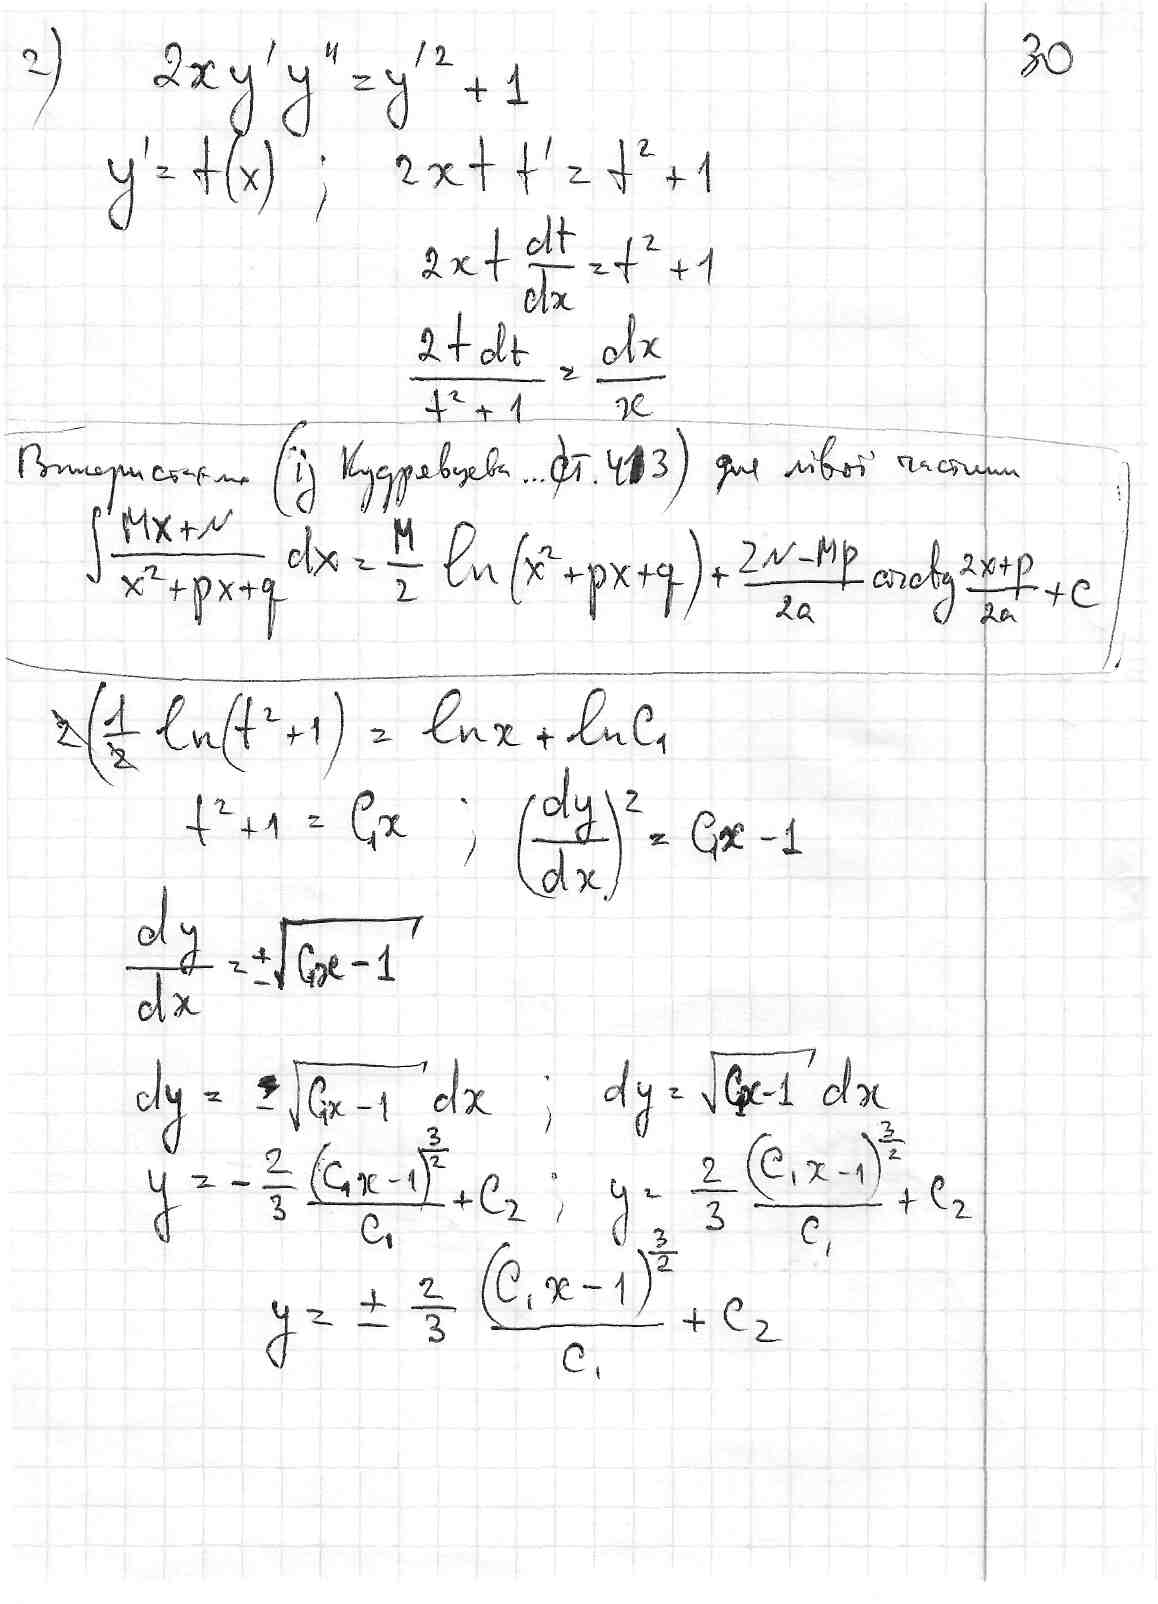 30
2) 2xy'y'' = y'² + 1
y' = t(x) ; 2xt t' = t² + 1
2xt dt/dx = t² + 1
2t dt/(t² + 1) = dx/x
Використаємо (ij Кудрявцева ... ст. 413) для лівої частини
∫ (Mx+N)/(x²+px+q) dx = M/2 ln(x²+px+q) + (2N-Mp)/2a arctg (2x+p)/2a + C
2(1/2 ln(t²+1) = ln x + ln C₁
t²+1 = C₁x ; (dy/dx)² = C₁x - 1
dy/dx = ±√(C₁x - 1)
dy = -√(C₁x - 1) dx ; dy = √(C₁x - 1) dx
y = - 2/3 (C₁x - 1)^(3/2)/C₁ + C₂ ; y = 2/3 (C₁x - 1)^(3/2)/C₁ + C₂
y = ± 2/3 (C₁x - 1)^(3/2)/C₁ + C₂